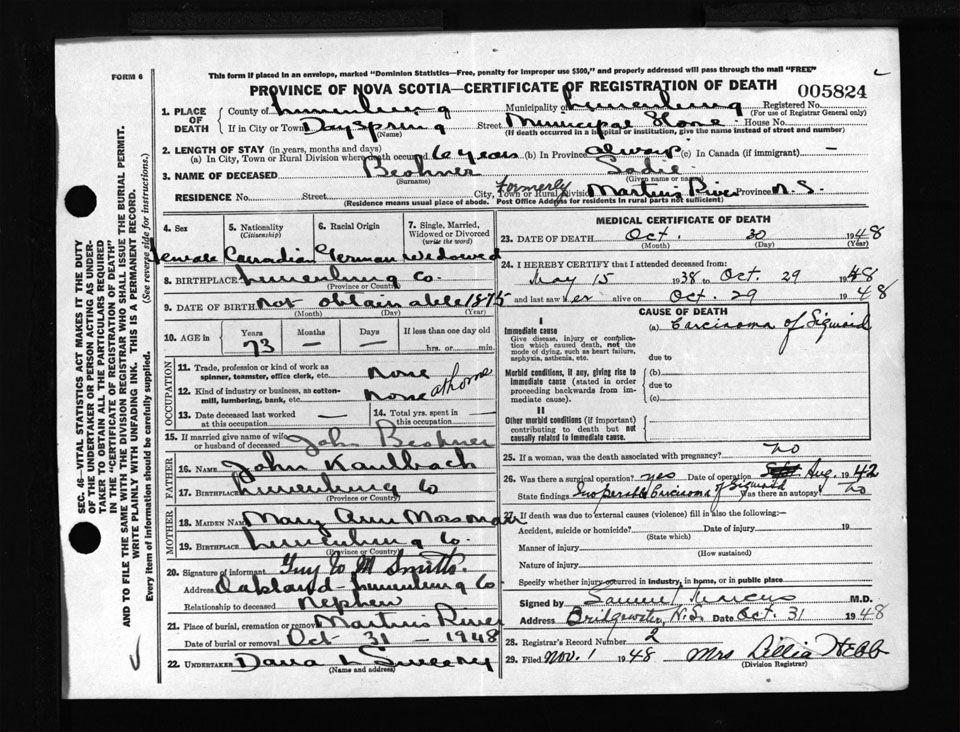 FORM 6
This form if placed in an envelope, marked "Dominion Statistics—Free, penalty for improper use $300," and properly addressed will pass through the mail "FREE"
PROVINCE OF NOVA SCOTIA—CERTIFICATE OF REGISTRATION OF DEATH 005824
1. PLACE OF DEATH County of Lunenburg Municipality of Lunenburg Registered No. (For use of Registrar General only)
If in City or Town Dayspring (Name) Street Municipal Home House No.
(If death occurred in a hospital or institution, give the name instead of street and number)
2. LENGTH OF STAY (in years, months and days)
(a) In City, Town or Rural Division where death occurred 6 years (b) In Province always (c) In Canada (if immigrant) —
3. NAME OF DECEASED Beohner (Surname) Sadie (Given name or names)
RESIDENCE No. Street City, Town or Rural Division Formerly Martins River Province N.S.
(Residence means usual place of abode. Post Office Address for residents in rural parts not sufficient)
SEC. 46—VITAL STATISTICS ACT MAKES IT THE DUTY
OF THE UNDERTAKER OR PERSON ACTING AS UNDERTAKER TO OBTAIN ALL THE PARTICULARS REQUIRED
IN THE "CERTIFICATE OF REGISTRATION OF DEATH"
AND TO FILE THE SAME WITH THE DIVISION REGISTRAR WHO SHALL ISSUE THE BURIAL PERMIT.
WRITE PLAINLY WITH UNFADING INK. THIS IS A PERMANENT RECORD.
Every item of information should be carefully supplied. (See reverse side for instructions.)
4. Sex 5. Nationality (Citizenship) 6. Racial Origin 7. Single, Married, Widowed or Divorced (write the word)
Female Canadian German Widowed
8. BIRTHPLACE Lunenburg Co. (Province or Country)
9. DATE OF BIRTH Not obtainable 1875 (Month) (Day) (Year)
10. AGE Years 73 Months — Days — If less than one day old hrs. or min.
OCCUPATION
11. Trade, profession or kind of work as spinner, teamster, office clerk, etc. None
12. Kind of industry or business, as cotton-mill, lumbering, bank, etc. None at home
13. Date deceased last worked at this occupation — 14. Total yrs. spent in this occupation —
15. If married give name of wife or husband of deceased John Beohner
FATHER
16. Name John Kaulbach
17. Birthplace Lunenburg Co (Province or Country)
MOTHER
18. Maiden Name Mary Ann Mosman
19. Birthplace Lunenburg Co. (Province or Country)
20. Signature of informant Guy M Smith.
Address Oakland - Lunenburg Co
Relationship to deceased Nephew
21. Place of burial, cremation or removal Martins River
Date of burial or removal Oct 31 - 1948
22. UNDERTAKER Dana L Sweeny (Name and address)
MEDICAL CERTIFICATE OF DEATH
23. DATE OF DEATH Oct. (Month) 30 (Day) 1948 (Year)
24. I HEREBY CERTIFY that I attended deceased from:
May 15 1938 to Oct. 29 1948
and last saw her alive on Oct. 29 1948
CAUSE OF DEATH
I
Immediate cause
Give disease, injury or complication which caused death, not the mode of dying, such as heart failure, asphyxia, asthenia, etc.
(a) Carcinoma of Sigmoid
due to
Morbid conditions, if any, giving rise to immediate cause (stated in order proceeding backwards from immediate cause).
(b)
due to
(c)
II
Other morbid conditions (if important) contributing to death but not causally related to immediate cause.
25. If a woman, was the death associated with pregnancy? No
26. Was there a surgical operation? yes Date of operation Aug. 1942
State findings Inoperable Carcinoma of Sigmoid Was there an autopsy? No
27. If death was due to external causes (violence) fill in also the following:—
Accident, suicide or homicide? (State which) Date of injury 19
Manner of injury (How sustained)
Nature of injury
Specify whether injury occurred in industry, in home, or in public place
Signed by Samuel Marcus M.D.
Address Bridgewater, N.S. Date Oct. 31 1948
28. Registrar's Record Number 2
29. Filed Nov. 1 1948 Mrs Lillia Hebb (Division Registrar)